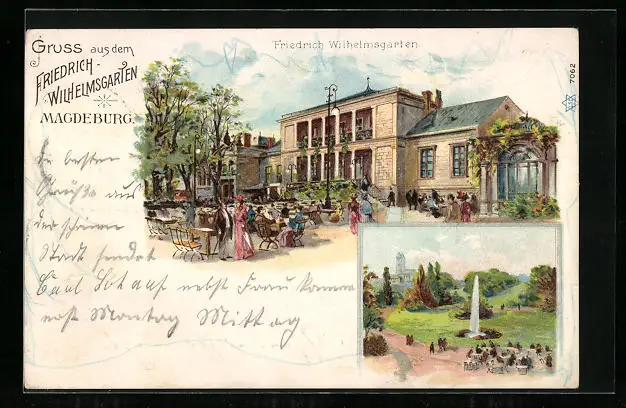 Gruss aus dem
FRIEDRICH-
WILHELMSGARTEN
MAGDEBURG.
Friedrich Wilhelmsgarten
7062
Die besten
Grüße aus
der schönen
Stadt sendet
nebst Frau komme
erst Montag Mittag